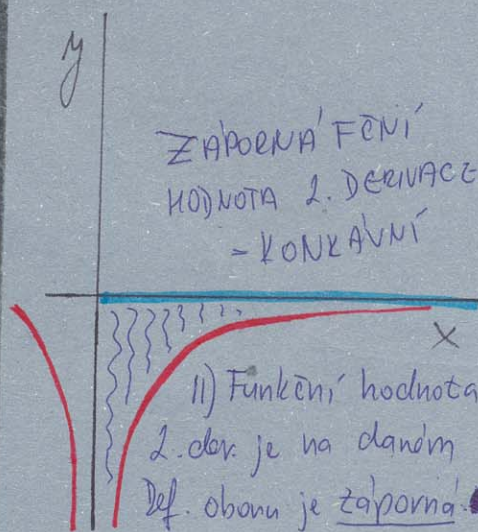 y
ZÁPORNÁ FČNÍ
HODNOTA 2. DERIVACE
- KONKÁVNÍ
x
II) Funkční hodnota
2. der. je na daném
Def. oboru je záporná.